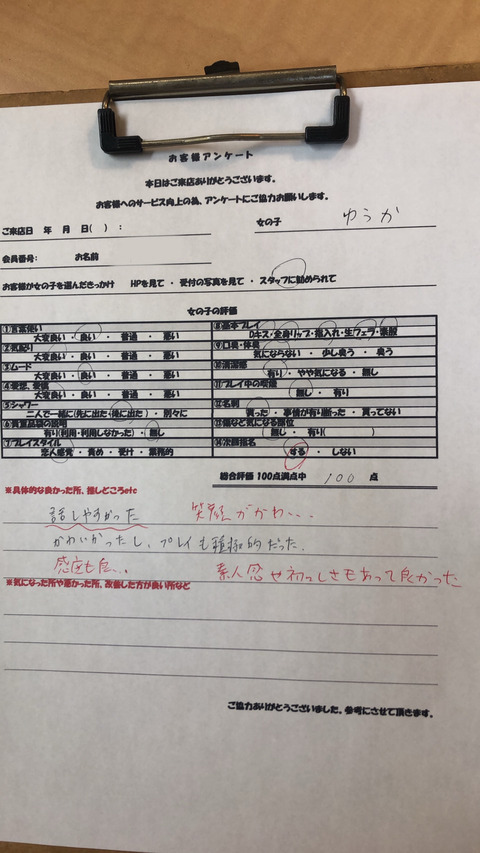 お客様アンケート
本日はご来店ありがとうございます。
お客様へのサービス向上の為、アンケートにご協力お願いします。
ご来店日　年　月　日(　)　：　　女の子　ゆうか
会員番号：　　お名前
お客様が女の子を選んだきっかけ　HPを見て ・ 受付の写真を見て ・ スタッフに勧められて
女の子の評価
①言葉使い
大変良い ・ 良い ・ 普通 ・ 悪い
②気配り
大変良い ・ 良い ・ 普通 ・ 悪い
③ムード
大変良い ・ 良い ・ 普通 ・ 悪い
④愛想、愛嬌
大変良い ・ 良い ・ 普通 ・ 悪い
⑤シャワー
二人で一緒(先に出た・後に出た) ・ 別々に
⑥貴重品袋の説明
有り(利用・利用しなかった) ・ 無し
⑦プレイスタイル
恋人感覚 ・ 責め ・ 受け ・ 業務的
⑧基本プレイ
Dキス・全身リップ・指入れ・生フェラ・素股
⑨口臭・体臭
気にならない ・ 少し臭う ・ 臭う
⑩清潔感
有り ・ やや気になる ・ 無し
⑪プレイ中の喫煙
無し ・ 有り
⑫名刺
貰った ・ 事情が有り断った ・ 貰ってない
⑬傷など気になる部位
無し ・ 有り(　)
⑭次回指名
する ・ しない
総合評価 100点満点中　100　点
※具体的な良かった所、推しどころetc
話しやすかった　笑顔がかわ...
かわいかったし、プレイも積極的だった.
感度も良...　素人感や初々しさもあって良かった
※気になった所や悪かった所、改善した方が良い所など
ご協力ありがとうございました、参考にさせて頂きます。